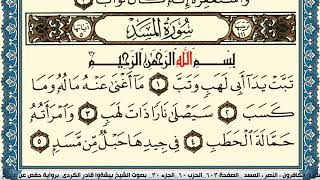 واستغفره إنه كان توابا
سورة المسد
بسم الله الرحمن الرحيم
تبت يدا أبي لهب وتب ١ ما أغنى عنه ماله وما
كسب ٢ سيصلى نارا ذات لهب ٣ وامرأته
حمالة الحطب ٤ في جيدها حبل من مسد ٥
كافرون ، النصر ، المسد . الصفحة ٦٠٣ الحزب ٦٠ الجزء ٣٠ . بصوت الشيخ بيشةوا قادر الكردي . برواية حفص عن